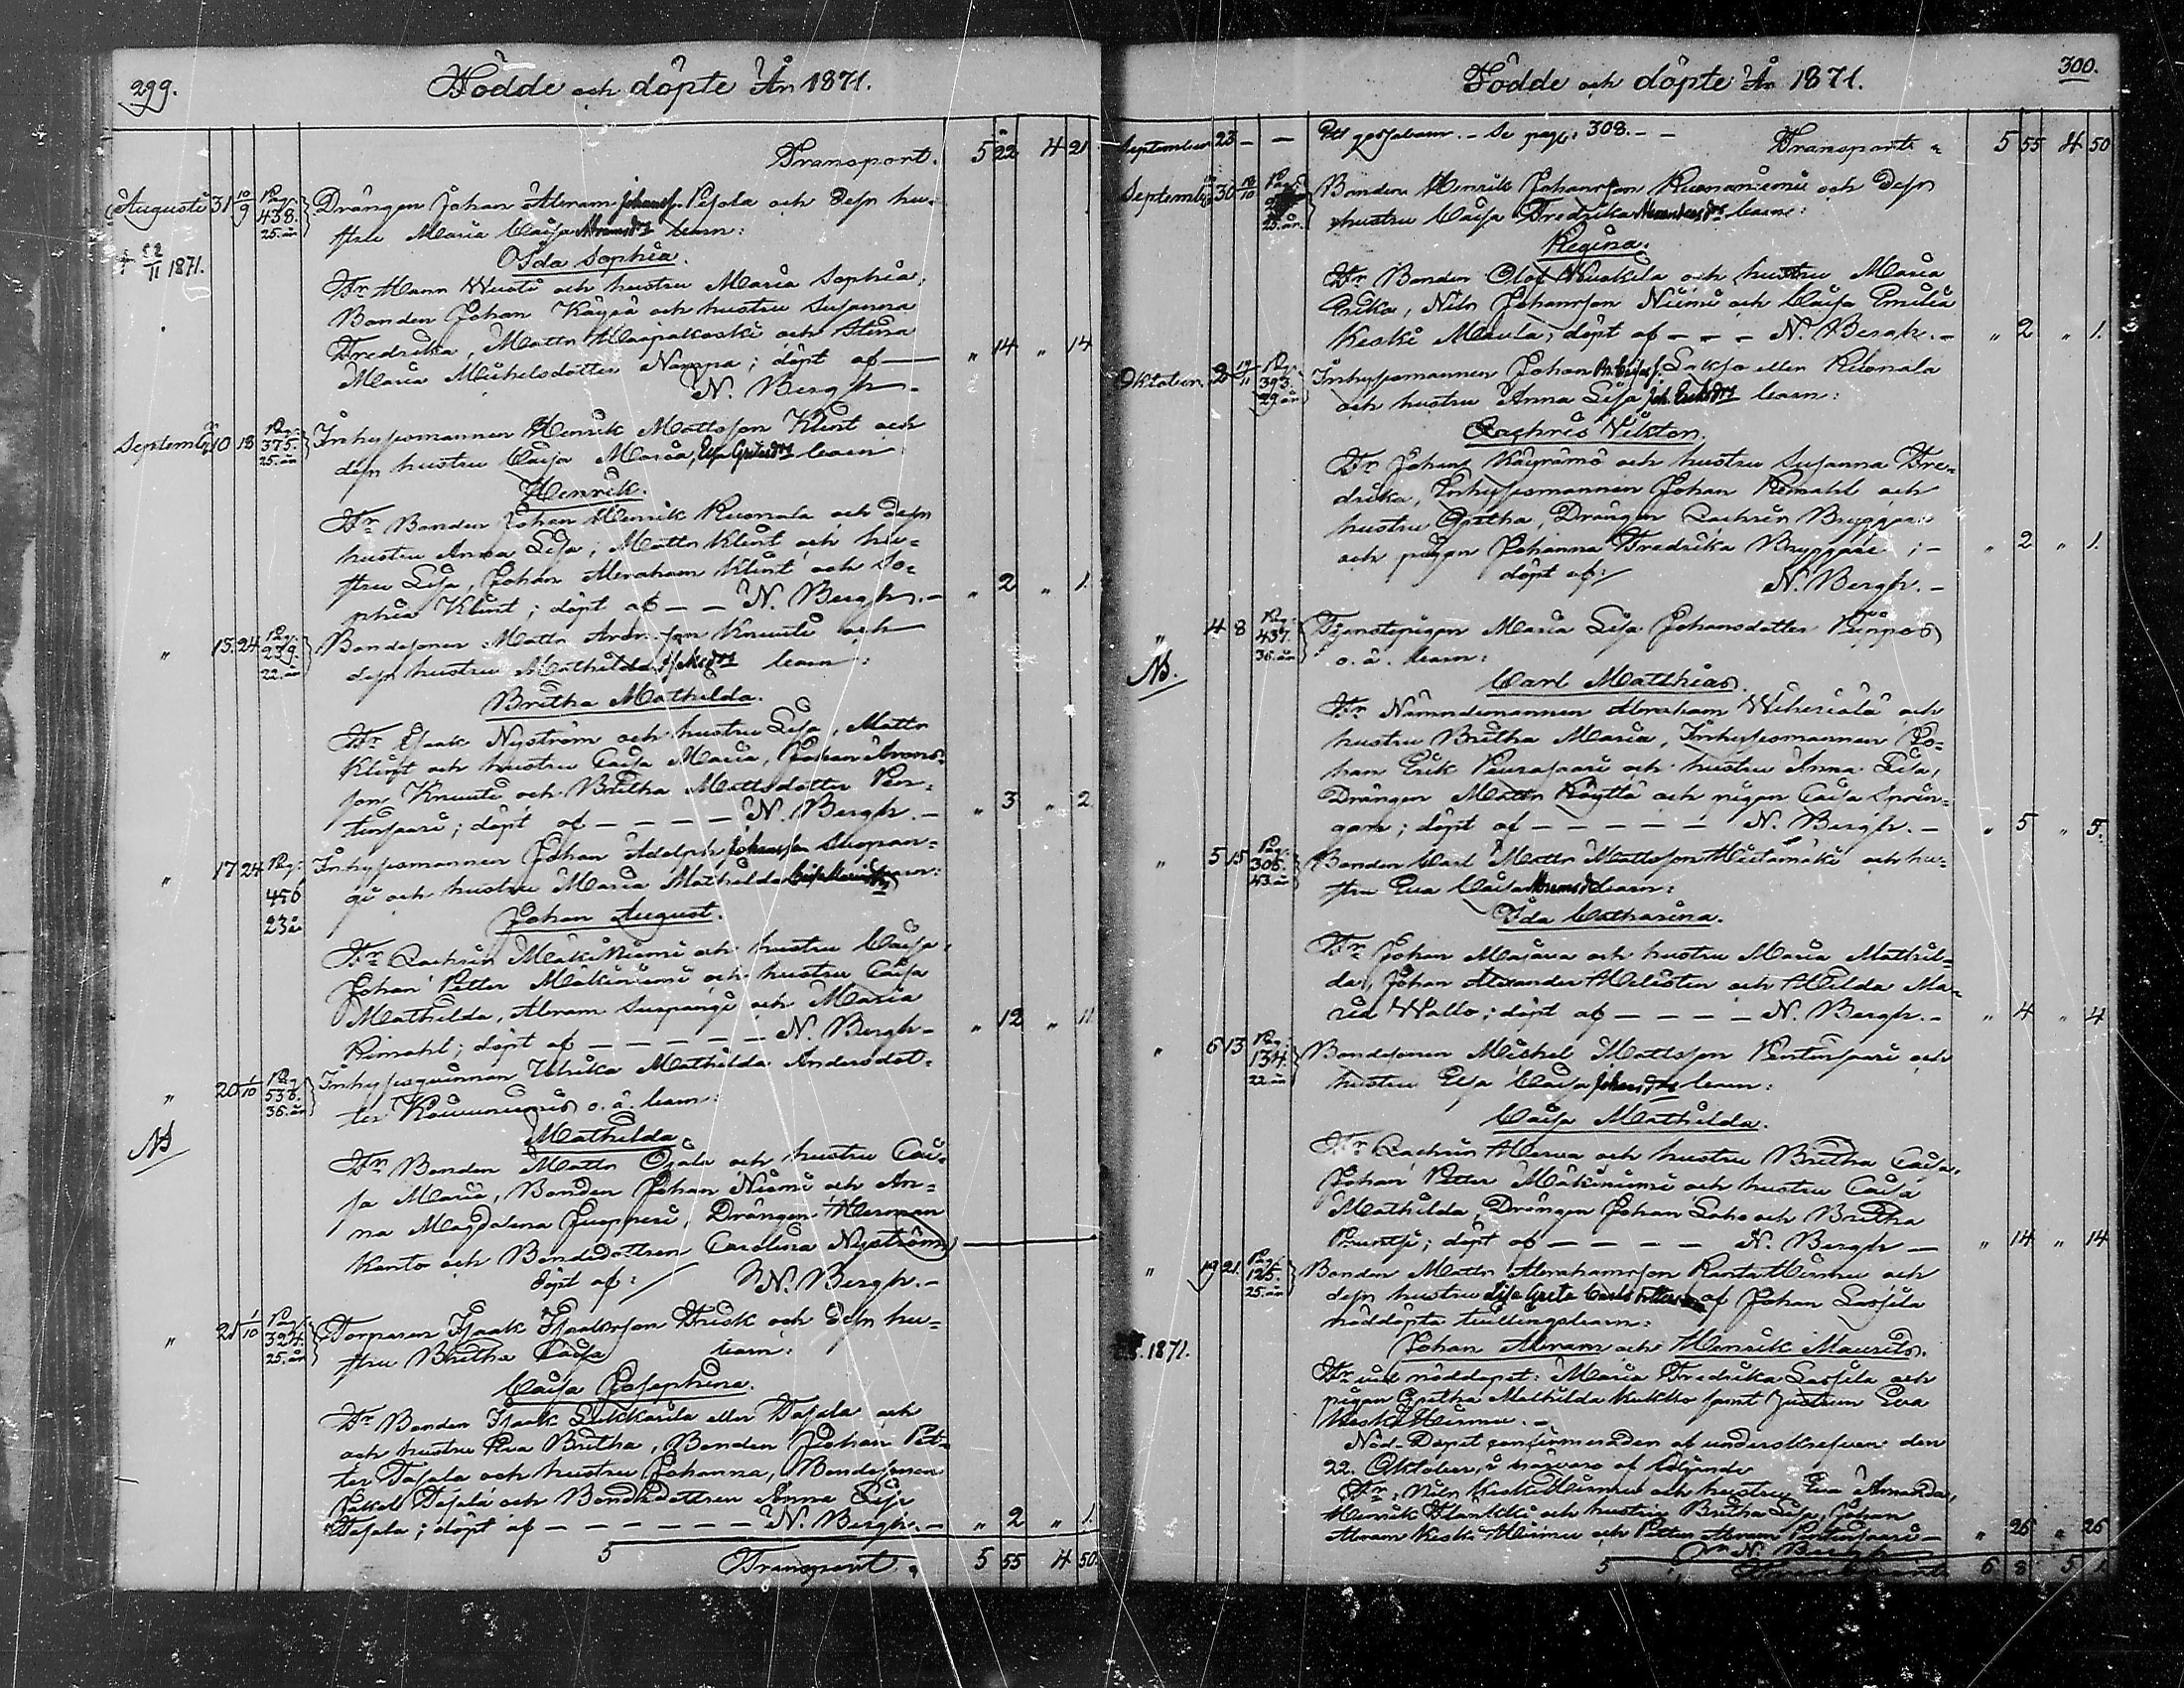 299.
Födde och döpte År 1871.
Transport. 5 22 4 21
Augusti 31 10/9 Pag. 438. 25. år Drängen Johan Abram Johanss. Pesola och dess hu-
stru Maria Caisa Abramsdr barn:
† 22/11 1871.
Ida Sophia.
Fr Mann och hustru Maria Sophia,
Bonden Johan Käyrä och hustru Susanna
Fredrika, Matts Haapakoski och Stina
Maria Michelsdotter Nampa; döpt af — " 14 " 14
N. Bergh.
September 10 18 Pag: 375. 25. år Inhysesmannen Henrik Mattsson Klint och
dess hustru Caisa Maria, barn
Henrik.
Fr Bonden Johan Henrik Ruonala och dess
hustru Anna Lisa; Matts Klint och hu-
stru Lisa, Johan Abraham Klint och So-
phia Klint; döpt af — — N. Bergh. — " 2 " 1.
" 15. 24 Pag. 239. 22. år Bondesonen Matts Knuuti och
dess hustru Mathilda barn:
Britha Mathilda.
Fr Isaak Nyström och hustru Lisa, Matts
Klint och hustru Caisa Maria, Johan Arons-
son Knuuti och Britha Mattsdotter Pen-
tinsaari; döpt af — — — — N. Bergh. — " 3 " 2
" 17 24 Pag: 456 23 år Inhysesmannen Johan Adolph Johansson Suopan-
gi och hustru Maria Mathilda barn:
Johan August.
Fr Zachris Mäkiniemi och hustru Caisa,
Johan Petter Mäkiniemi och hustru Caisa
Mathilda, Abram Suopangi och Maria
Rimahl; döpt af — — — — — N. Bergh — " 12 " 11
" 20 1/10 Pag. 538. 36. år Inhysesqvinnan Ulrika Mathilda Andersdot-
ter o. ä. barn:
NB
Mathilda.
Fr Bonden Matts Ojala och hustru Cai-
sa Maria, Bonden Johan Niemi och An-
na Magdalena Juopperi, Drängen Herman
Kanto och Bondedottren Carolina Nyström
döpt af: / N. Bergh. —
" 21 1/10 Pag. 324. 25. år Torparen Isaak Isaaksson Frisk och dess hu-
stru Britha Caisa barn:
Caisa Josephina.
Fr Bonden Isaak Lukkarila eller Tapala och
och hustru Eva Britha, Bonden Johan Pet-
ter Tapala och hustru Johanna, Bondesonen
Jakob Tapala och Bondedottren Anna Lisa
Tapala; döpt af — — — — — — N. Bergh. — " 2 " 1.
5
Transport. 5 55 4 50
300.
Födde och döpte År 1871.
September 23 — — Ett gossebarn. — Se pag: 308. — — Transport 5 55 4 50
September 30 10 Pag: 25. år. Bonden Henrik Johansson Ruonaniemi och dess
hustru Caisa Fredrika barn:
Regina.
Fr Bonden Olof Wuokila och hustru Maria
Erika, Nils Johansson Niemi och Caisa Emilia
Keski Maula; döpt af — — — N. Bergh. — " 2 " 1.
Oktober. 2 11 Pag. 393. 29 år Inhysesmannen Johan Lakso eller Ruonala
och hustru Anna Lisa barn:
Zachris Viktor.
Fr Johan Käyrämö och hustru Susanna Fre-
drika, Inhysesmannen Johan Rimahl och
hustru Gretha, Drängen Zachris Bryggare
och pigan Johanna Fredrika Bryggare; — " 2 " 1.
döpt af: / N. Bergh. —
" 4 8 Pag. 437. 36. år Tjenstepigan Maria Lisa Johansdotter Piippos
o. ä. barn:
NB.
Carl Matthias.
Fr Nämndemannen Abraham Wiheriälä och
hustru Britha Maria, Inhysesmannen Jo-
han Erik Peurasaari och hustru Anna Lisa,
Drängen Matts Röyttä och pigan Caisa Sprin-
gare; döpt af — — — — — N. Bergh. — " 5 " 5.
" 5 15 Pag. 305. 43. år Bonden Carl Matts Mattsson Hietamäki och hu-
stru Eva Caisa Abramsdr barn:
Ida Catharina.
Fr Johan Majava och hustru Maria Mathil-
da, Johan Alexander Helisten och Hilda Ma-
ria Wallo; döpt af — — — — N. Bergh. — " 4 " 4
" 6 13 Pag. 134. 22. år Bondesonen Michel Mattsson Pentinsaari och
hustru Eva Caisa Johansdr barn:
Caisa Mathilda.
Fr Zachris Herva och hustru Britha Caisa,
Johan Petter Mäkiniemi och hustru Caisa
Mathilda, Drängen Johan Laho och Britha
Pruntsi; döpt af — — — — N. Bergh — " 14 " 14
" 19 21. Pag. 125. 25. år Bonden Matts Abrahamsson Ranta Hirmu och
dess hustru Lisa Greta Carlsdotters af Johan Lassila
nöddöpta tvillingsbarn:
1871.
Johan Abram och Henrik Maurits.
Fr vid nöddopet: Maria Fredrika Lassila och
pigan Gretha Mathilda Kukko samt Justina Eva
Keski Hirmu. —
Nöd-Dopet confirmeraden af underskrefven den
22. Oktober, i närvaro af följande
Fr: Nils Keski Hirmu och hustru Eva Amanda,
Henrik Flankki och hustru Britha Lisa, Johan
Abram Keski Hirmu och Petter Abram Pentinsaari — " 26 " 26
N. Bergh
5 Transport 6 8 5 1.